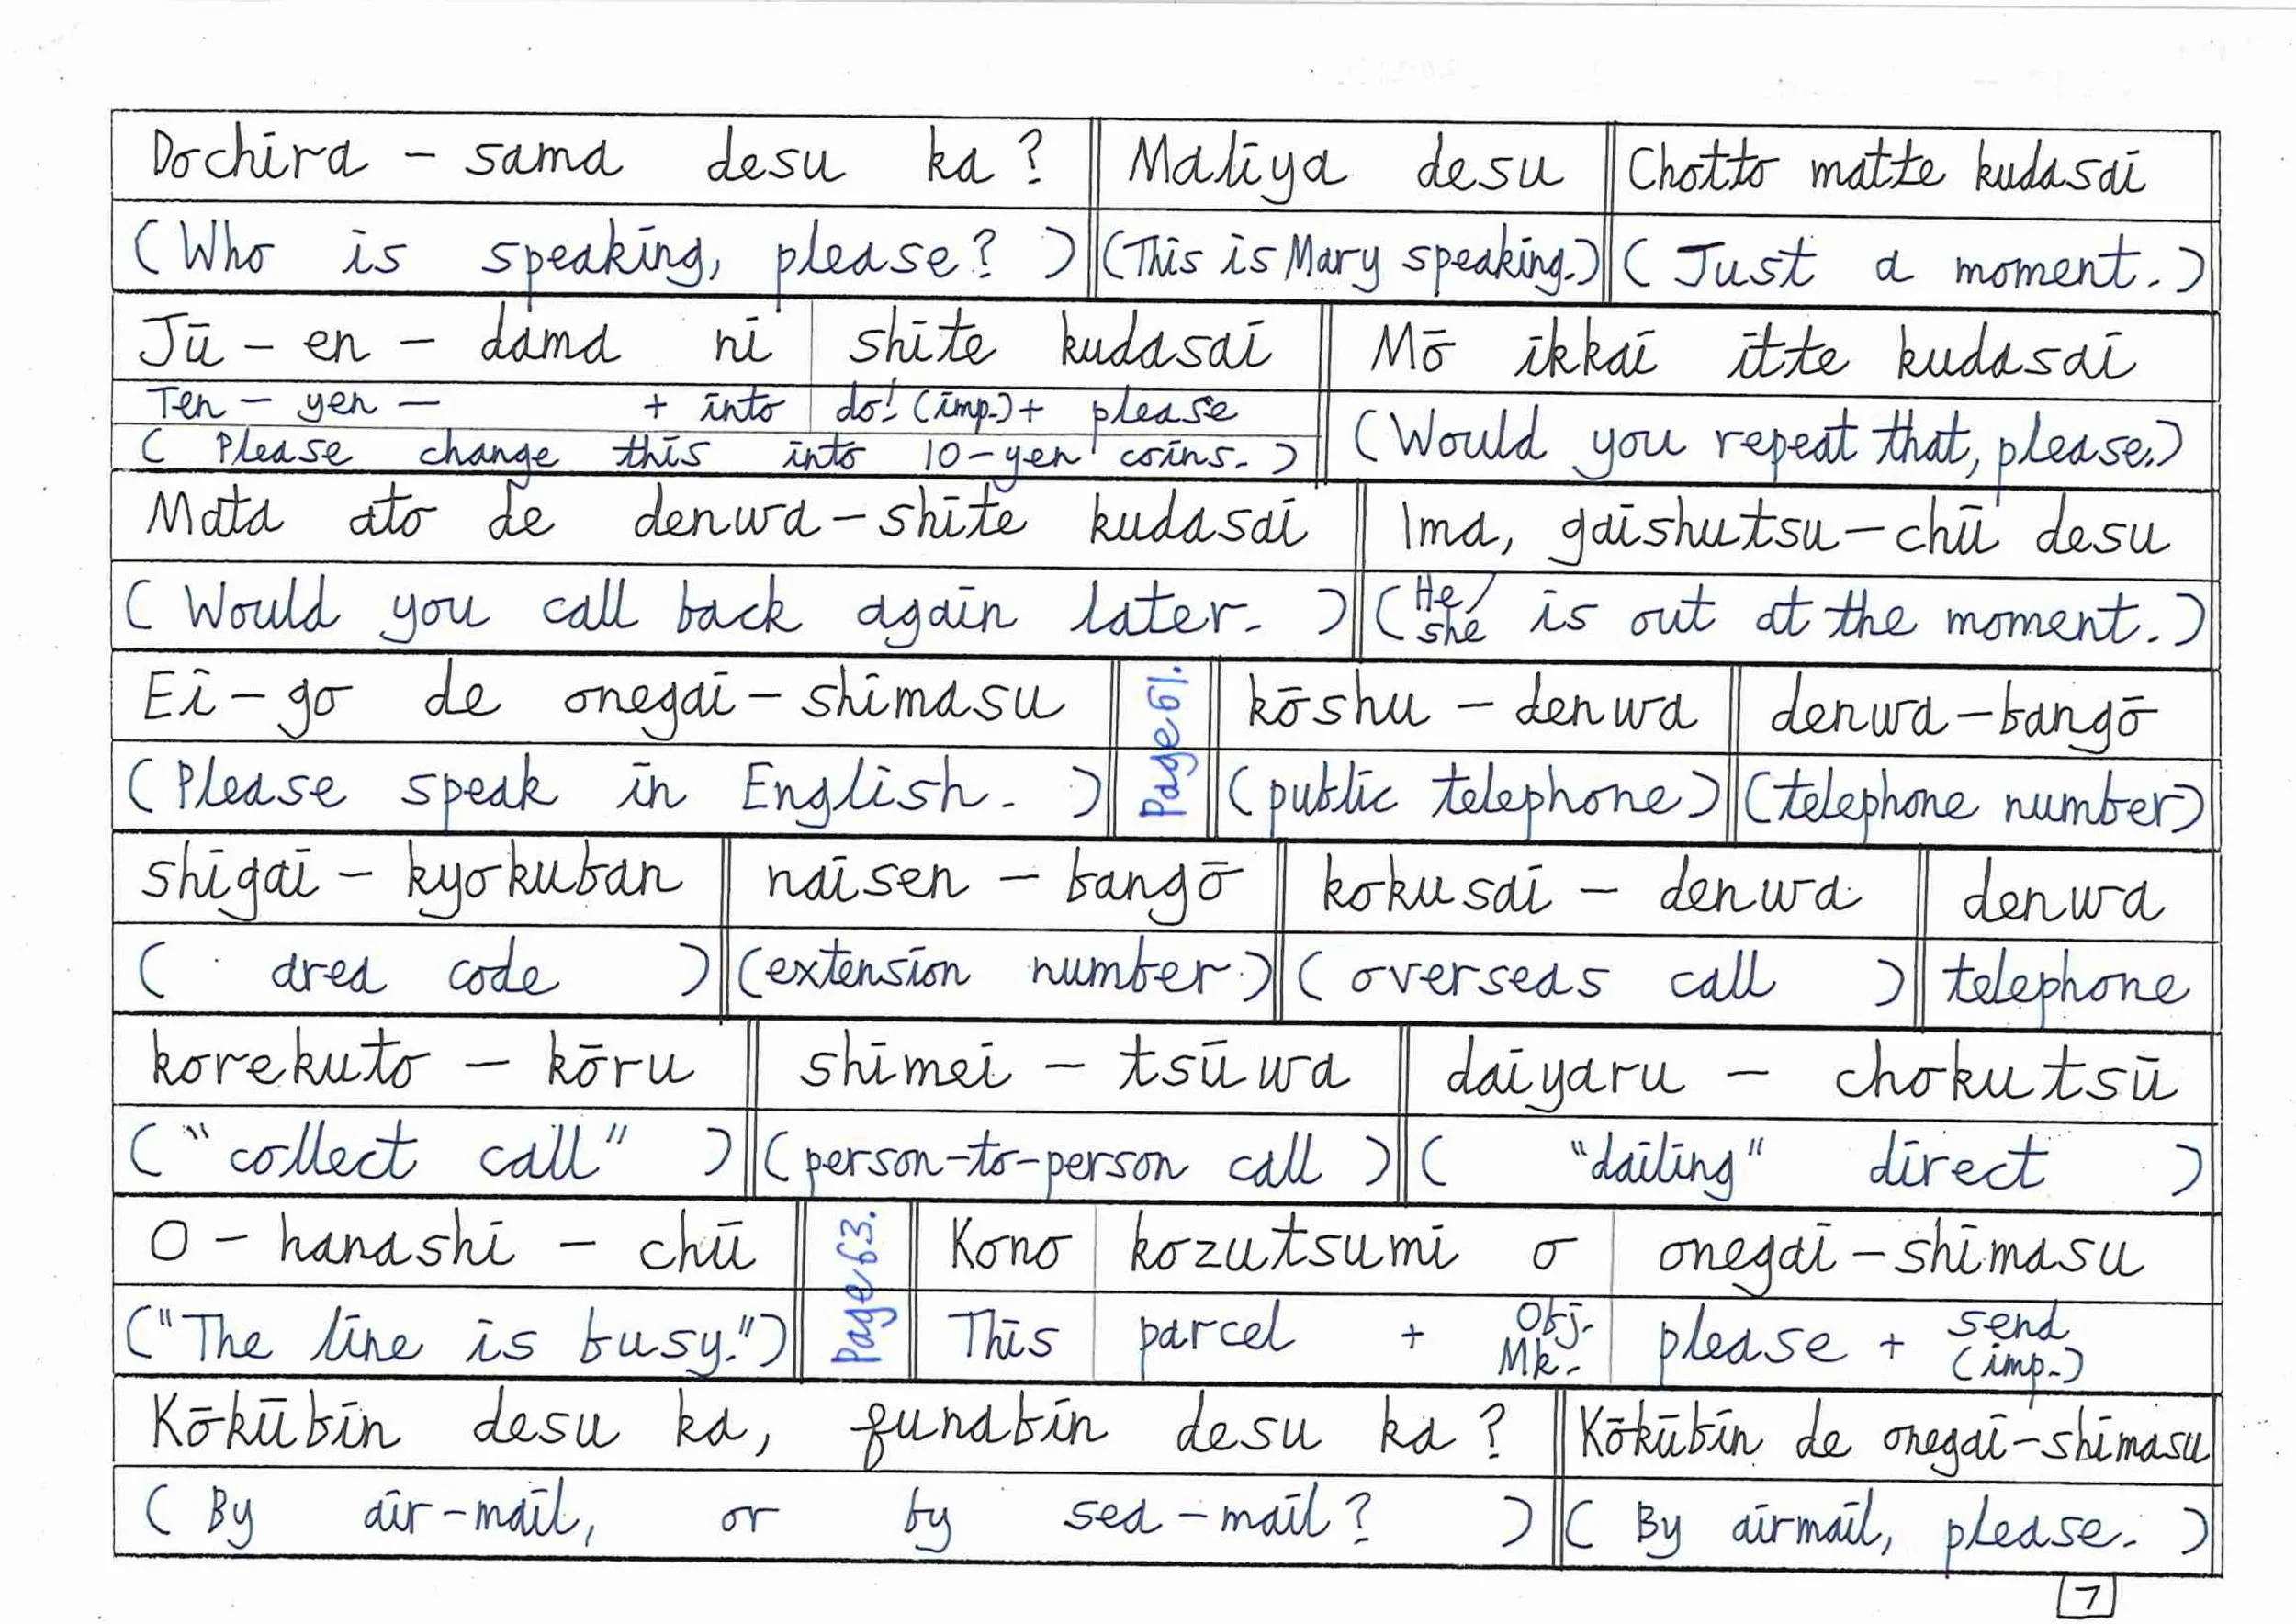 Dochira - sama desu ka? Maliya desu Chotto matte kudasai
(Who is speaking, please?) (This is Mary speaking.) (Just a moment.)
Jū - en - dama ni shite kudasai Mō ikkai itte kudasai
Ten - yen - + into do! (imp.) + please
(Please change this into 10-yen coins.) (Would you repeat that, please.)
Mata ato de denwa-shite kudasai Ima, gaishutsu-chū desu
(Would you call back again later.) (He/she is out at the moment.)
Ei-go de onegai-shimasu Page 61. kōshu - denwa denwa-bangō
(Please speak in English.) (public telephone) (telephone number)
shigai - kyokuban naisen - bangō kokusai - denwa denwa
(area code) (extension number) (overseas call) telephone
korekuto - kōru shimei - tsūwa daiyaru - chokutsū
("collect call") (person-to-person call) ("dailing" direct)
O - hanashi - chū Page 63. Kono kozutsumi o onegai-shimasu
("The line is busy.") This parcel + Obj. Mk. please + send (imp.)
Kōkūbin desu ka, funabin desu ka? Kōkūbin de onegai-shimasu
(By air-mail, or by sea-mail?) (By airmail, please.)
7